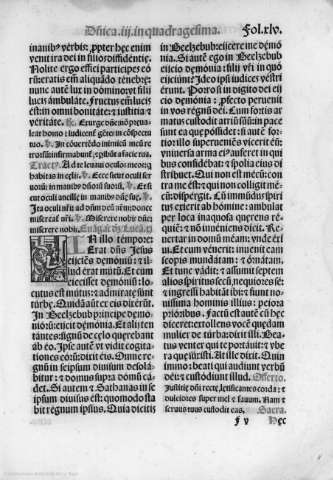 Dñica .iij. in quadragesima. Fol.xlv.
inanibꝰ verbis: ꝓpter hec enim
venit ira dei in filios diffidentie.
Nolite ergo effici participes eo
rũ: eratis eñi aliquãdo tenebre:
nunc autẽ lux in dño: vt filij
lucis ambulate. Fructus eñi lucis
est in omni bonitate: et iusticia et
veritate. Exurge dñe nõ preua-
leat homo: iudicentur gẽtes in cõspectu
tuo. In cõuertẽdo inimicũ meũ re-
trorsũ: infirmabunt et peribũt a facie tua.
Tractꝰ. Ad te leuaui oculos meos: q
habitas in celis. Ecce sicut oculi ser
uorũ: in manibꝰ dñorũ suorũ. Et si
cut oculi ancille: in manibꝰ dñe sue.
Ita oculi nři ad dñm deũ nřm: donec
misereať nři. Miserere nobis dñe:
miserere nobis. Lucã.
IN illo tempore:
Erat dñs Jesus
eijciẽs demoniũ: et il
lud erat mutũ. Et cum
eiecisset demoniũ: lo-
cutus est mutus: et admirate sunt
turbe. Quidã autẽ ex eis dixerũt.
In Beelzebub prĩcipe demo-
niorũ: eijcit demonia. Et alij ten
tantes: signũ de celo querebant
ab eo. Ipse autẽ vt vidit cogita-
tiones eorũ: dixit eis. Omne re-
gnũ in seipsum diuisum desola-
bitur: et domus supra domũ ca-
det. Si autem et Sathanas in se
ipsum diuisus est: quomodo sta
bit regnum ipsius. Quia dicitis
in Beelzebub: eijcere me demõ
nia. Si autẽ ego in Beelzebub
eijcio demonia: filij vři in quo
eijciũt? Ideo ipsi iudices vestri
erunt. Porro si in digito dei eij
cio demonia: ꝓfecto peruenit
in vos regnũ dei. Cum fortis ar
matus custodit atriũ suũ: in pace
sunt ea que possidet: si autẽ for-
tior illo superueniẽs vicerit eũ:
vniuersa arma eiꝰ auferet in qui
bus confidebat: et spolia eius di
stribuet. Qui non est mecũ: con
tra me est: et qui non colligit me-
cũ: dispergit. Cũ immũdus spiri
tus exierit ab homine: ambulat
per loca inaquosa querens re-
quiẽ: et nõ inueniens dicit. Re-
uertar in domũ meam: vnde exi
ui. Et cum venerit: inuenit eam
scopis mundatam: et ornatam.
Et tunc vadit: et assumit septem
alios spiritus secũ, nequiores se:
et ingressi habitãt ibi: et fiunt no-
uissima hominis illius: peiora
prioribus. Factũ est autẽ cũ hec
diceret: extollens vocẽ quedam
mulier de turba: dixit illi. Bea-
tus venter qui te portauit: et vbe
ra que suxisti. At ille dixit. Quin
immo: beati qui audiunt verbũ
dei: et custodiunt illud. Offerto.
Justicie dñi recte, letificantes corda: et
dulciores super mel et fauum. Nam et
seruus tuus custodit eas. Sacra.
F v Hec